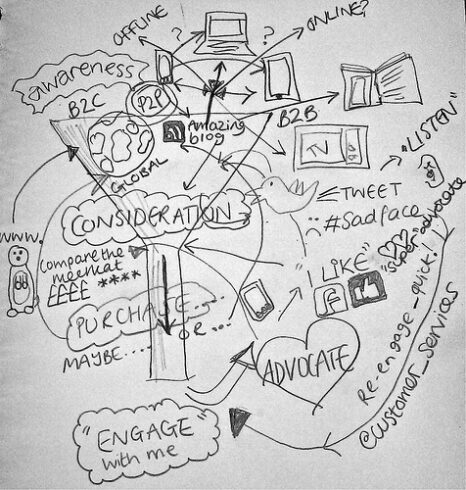 OFFLINE
?
?
ONLINE?
awareness
B2C
P2P
B2B
Amazing
blog
TV
"LISTEN"
GLOBAL
TWEET
#Sadface
CONSIDERATION
www.
Compare the
meerkat
££££ ****
"I LIKE"
"super" advocate
f
PURCHASE....
OR...
MAYBE....
ADVOCATE
Re-engage-quick!
@customer_services
"ENGAGE"
with me